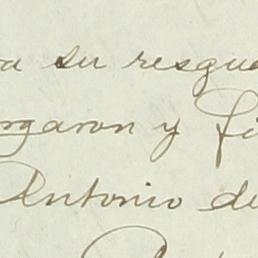 a su resgua
rgaron y fi
Antonio de